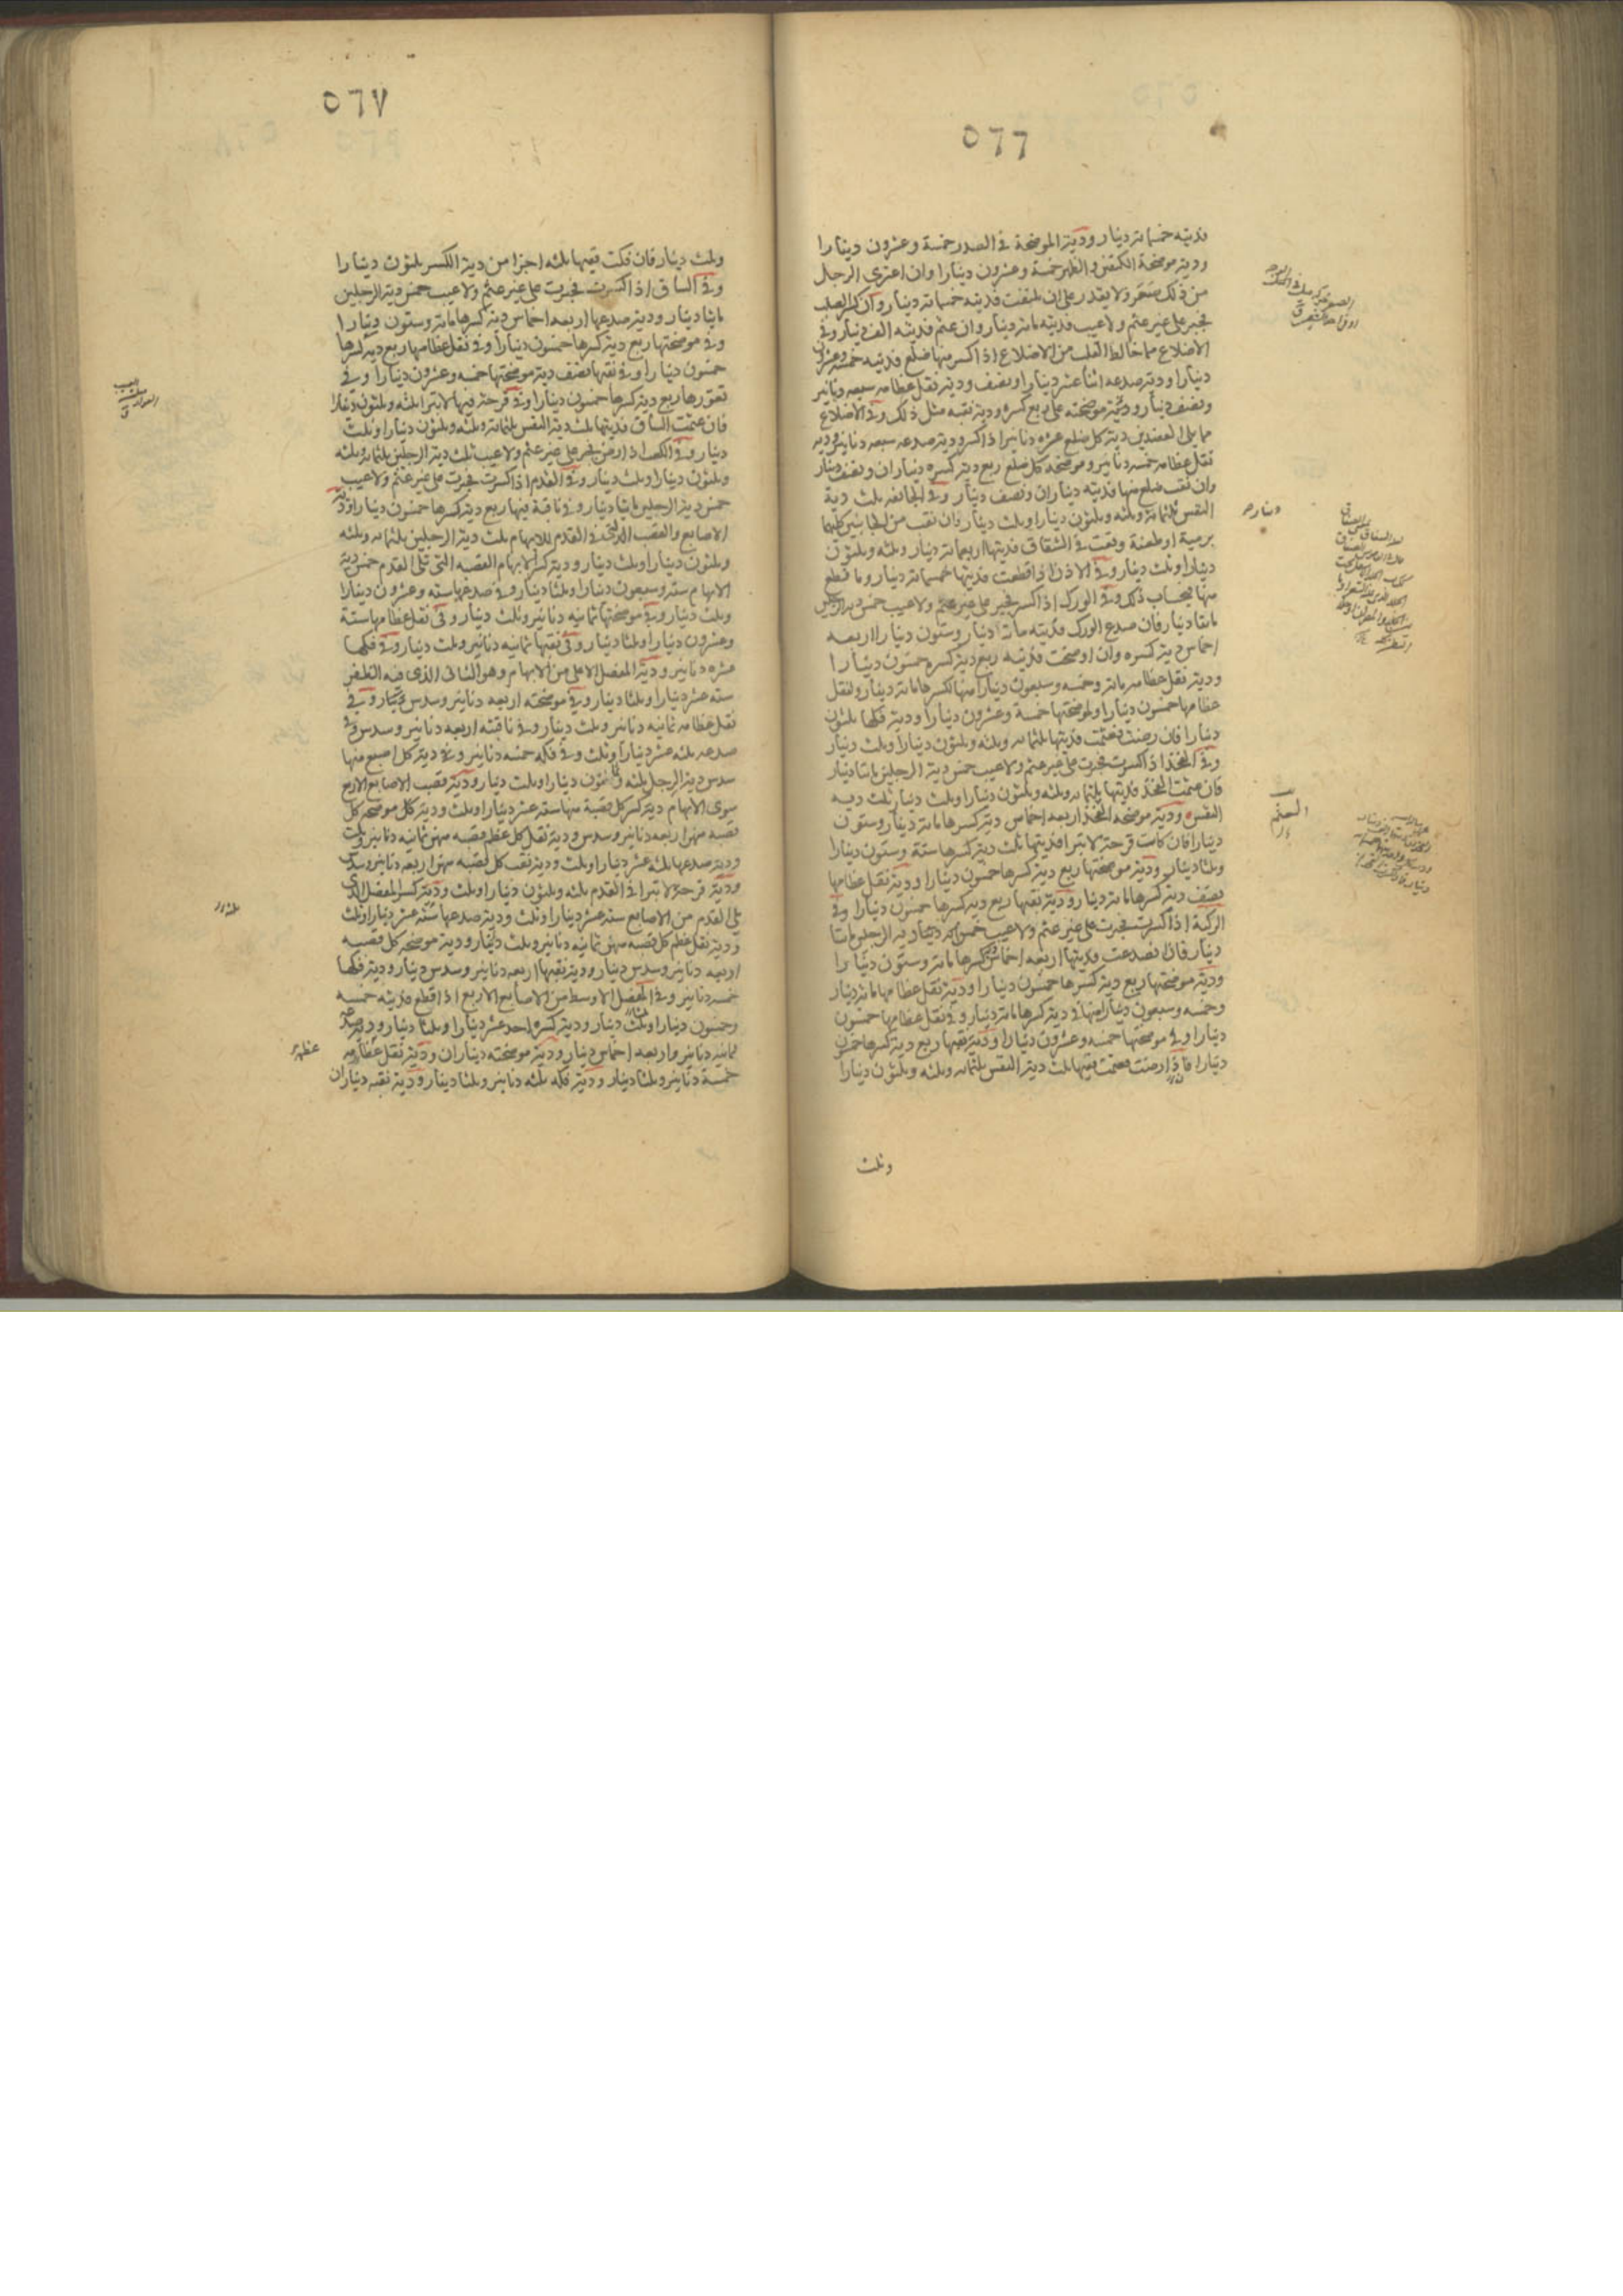 ٥٦٦
فديته خمسمائة دينار ودية الموضحة في الصدر خمسة وعشرون دينارا
ودية موضحة الكتفين والظهر خمسة وعشرون دينارا وان اعترى الرجل
من ذلك صعر ولا يقدر على ان يلتفت فديته خمسمائة دينار وان كسر الصلب
فجبر على غير عثم ولا عيب فديته مائة دينار وان عثم فديته الف دينار وفي
الاضلاع مما خالط القلب من الاضلاع اذا كسر منها ضلع فديته خمسة وعشرون
دينارا ودية صدعه اثنا عشر دينارا ونصف ودية نقل عظامه سبعه دنانير
ونصف دينار ودية موضحته على ربع كسره ودية نقبه مثل ذلك وفي الاضلاع
مما يلي العضدين دية كل ضلع عشره دنانير اذا كسر ودية صدعه سبعه دنانير ودية
نقل عظامه خمسه دنانير وموضحه كل ضلع ربع دية كسره ديناران ونصف دينار
وان نقب ضلع منها فديته ديناران ونصف دينار وفي الجائفه ثلث دية
النفس ثلثمائة وثلثه وثلثون دينارا وثلث دينار وان نقب من الجانبين كليهما
برمية او طعنة وقعت في الشقاق فديتها اربعمائة دينار وثلثه وثلثون
دينارا وثلث دينار وفي الاذن اذا قطعت فديتها خمسمائة دينار وما قطع
منها فبحساب ذلك وفي الورك اذا كسر فجبر على غير عثم ولا عيب خمس دية الرجلين
مائتا دينار فان صدع الورك فديته مائة دينار وستون دينارا اربعه
اخماس دية كسره وان اوضحت فديته ربع دية كسره خمسون دينارا
ودية نقل عظامه مائة وخمسه وسبعون دينارا منها لكسرها مائة دينار ولنقل
عظامها خمسون دينارا ولموضحتها خمسة وعشرون دينارا ودية فكها ثلثون
دينارا فان رضت فعثمت فديتها ثلثمائه وثلثه وثلثون دينارا وثلث دينار
وفي الفخذ اذا كسرت فجبرت على غير عثم ولا عيب خمس دية الرجلين مائتا دينار
فان عثمت الفخذ فديتها ثلثمائه وثلثه وثلثون دينارا وثلث دينار ثلث ديه
النفس ودية موضحه الفخذ اربعه اخماس دية كسرها مائة دينار وستون
دينارا فان كانت قرحة لا تبرا فديتها ثلث دية كسرها ستة وستون دينارا
وثلثا دينار ودية موضحتها ربع دية كسرها خمسون دينارا ودية نقل عظامها
نصف دية كسرها مائة دينار ودية نقبها ربع دية كسرها خمسون دينارا وفي
الركبة اذا كسرت فجبرت على غير عثم ولا عيب خمس دية الرجلين مائتا
دينار فان انصدعت فديتها اربعه اخماس كسرها مائة وستون دينارا
ودية موضحتها ربع دية كسرها خمسون دينارا ودية نقل عظامها مائة دينار
وخمسه وسبعون دينارا منها في دية كسرها مائة دينار وفي نقل عظامها خمسون
دينارا وفي موضحتها خمسه وعشرون دينارا ودية نقبها ربع دية كسرها خمسون
دينارا فاذا رضت فعثمت ففيها ثلث دية النفس ثلثمائه وثلثه وثلثون دينارا
وثلث
٥٦٧
وثلث دينار فان فكت ففيها ثلثه اجزا من دية الكسر ثلثون دينارا
وفي الساق اذا كسرت فجبرت على غير عثم ولا عيب خمس دية الرجلين
مائتا دينار ودية صدعها اربعه اخماس دية كسرها مائة وستون دينارا
وفي موضحتها ربع دية كسرها خمسون دينارا وفي نقل عظامها ربع دية كسرها
خمسون دينارا وفي نقبها نصف دية موضحتها خمسه وعشرون دينارا وفي
تعورها ربع دية كسرها خمسون دينارا وفي قرحة فيها لا تبرا ثلثه وثلثون دينارا
فان عثمت الساق فديتها ثلث دية النفس ثلثمائة وثلثه وثلثون دينارا وثلث
دينار وفي الكعب اذا رض فجبر على غير عثم ولا عيب ثلث دية الرجلين ثلثمائه وثلثه
وثلثون دينارا وثلث دينار وفي القدم اذا كسرت فجبرت على غير عثم ولا عيب
خمس دية الرجلين مائتا دينار وفي ناقبة فيها ربع دية كسرها خمسون دينارا ودية
الاصابع والقصب التي في القدم للابهام ثلث دية الرجلين ثلثمائه وثلثه
وثلثون دينارا وثلث دينار ودية كسر الابهام القصبه التي تلي القدم خمس دية
الابهام ستة وسبعون دينارا وثلثا دينار وفي صدعها سته وعشرون دينارا
وثلث دينار وفي موضحتها ثمانيه دنانير وثلث دينار وفي نقل عظامها ستة
وعشرون دينارا وثلثا دينار وفي نقبها ثمانيه دنانير وثلث دينار وفي فكها
عشره دنانير ودية المفصل الاعلى من الابهام وهو الثاني الذي فيه الظفر
سته عشر دينارا وثلثا دينار وفي موضحته اربعه دنانير وسدس دينار وفي
نقل عظامه ثمانيه دنانير وثلث دينار وفي ناقبته اربعه دنانير وسدس وفي
صدعه ثلثه عشر دينارا وثلث وفي فكه خمسه دنانير وفي دية كل اصبع منها
سدس دية الرجل ثلثه وثمنون دينارا وثلث دينار ودية قصب الاصابع الاربع
سوى الابهام دية كسر كل قصبة منها سته عشر دينارا وثلث ودية كل موضحه كل
قصبه منهن اربعه دنانير وسدس ودية نقل كل عظم قصبه منهن ثمانيه دنانير وثلث
ودية صدعها ثلثه عشر دينارا وثلث ودية نقب كل قصبه منهن اربعه دنانير وسدس
ودية قرحة لا تبرا في القدم ثلثه وثلثون دينارا وثلث ودية كسر المفصل الذي
يلي القدم من الاصابع سته عشر دينارا وثلث ودية صدعها سته عشر دينارا وثلث
ودية نقل عظم كل قصبه منهن ثمانيه دنانير وثلث دينار ودية موضحه كل قصبه
اربعه دنانير وسدس دينار ودية نقبها اربعه دنانير وسدس دينار ودية فكها
خمسه دنانير وفي المفصل الاوسط من الاصابع الاربع اذا قطع فديته خمسه
وخمسون دينارا وثلث دينار ودية كسره احد عشر دينارا وثلثا دينار ودية صدعه
ثمانيه دنانير واربعه اخماس دينار ودية موضحته ديناران ودية نقل عظامه
خمسة دنانير وثلثا دينار ودية فكه ثلثه دنانير وثلثا دينار ودية نقبه ديناران